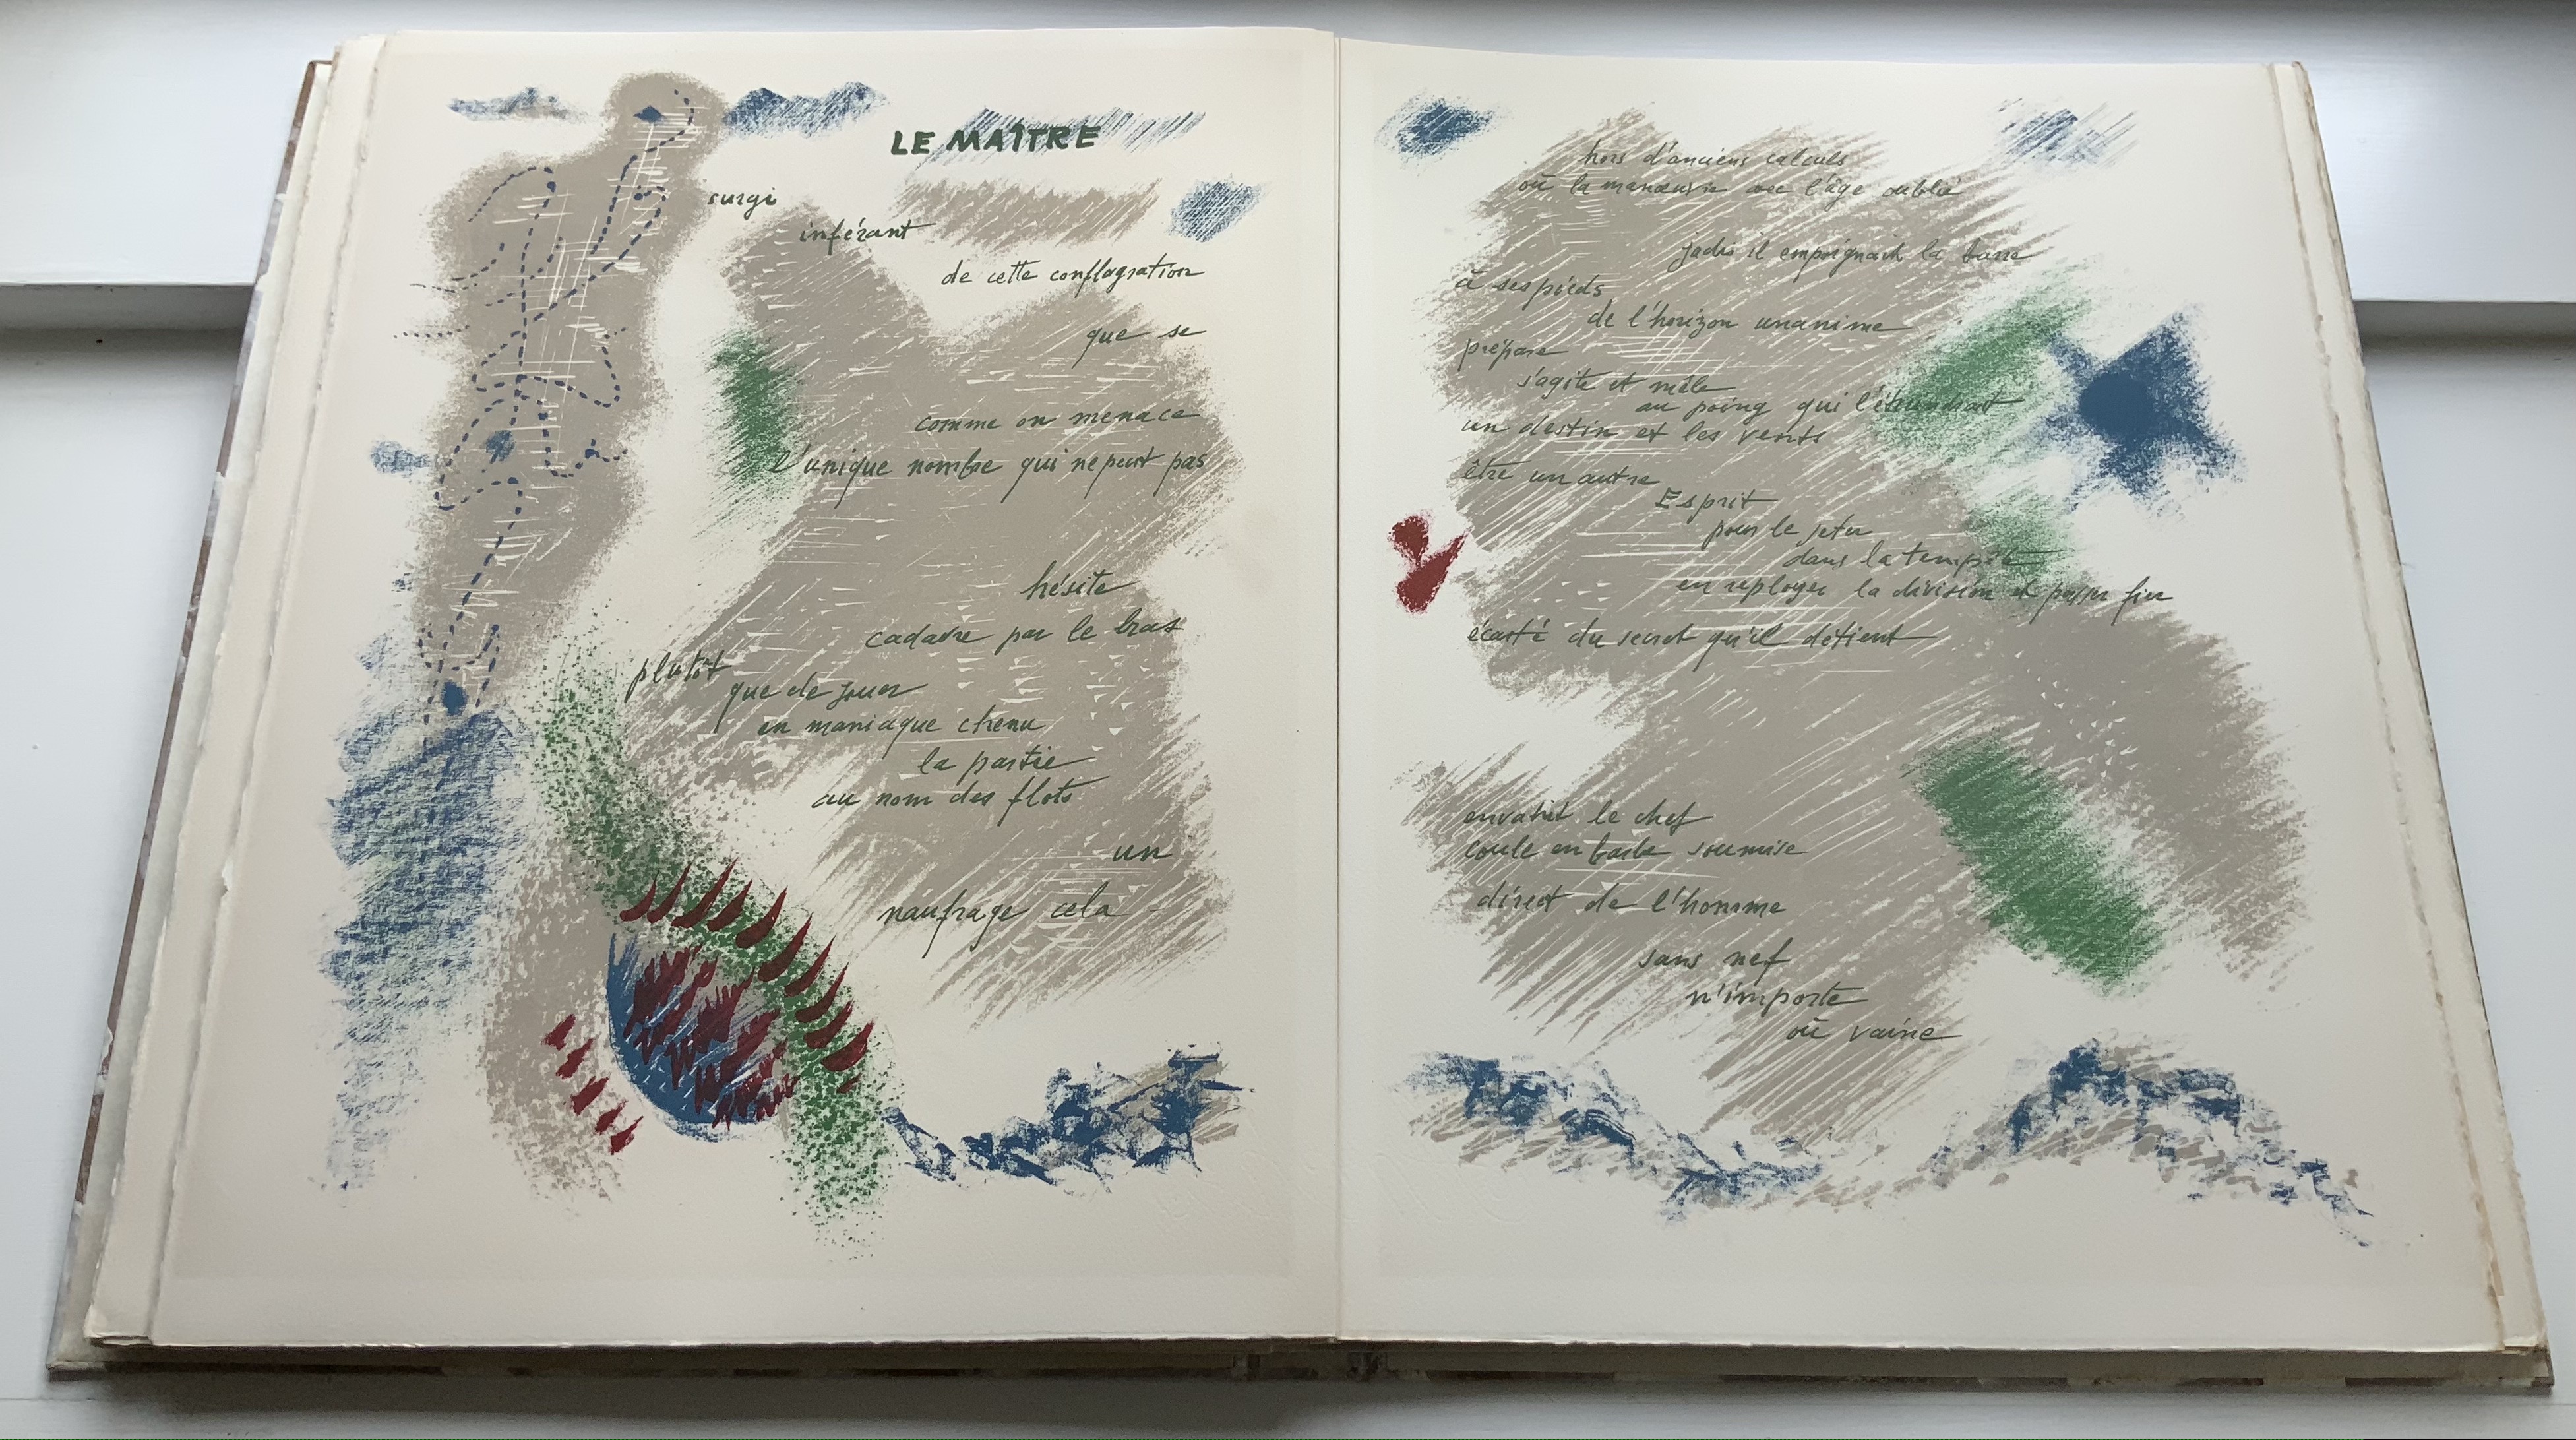 LE MAÎTRE
surgi
inférant
de cette conflagration
que se
comme on menace
l'unique nombre qui ne peut pas
hésite
cadavre par le bras
plutôt
que de jouer
en maniaque chenu
la partie
au nom des flots
un
naufrage cela
hors d'anciens calculs
où la manœuvre avec l'âge oubliée
jadis il empoignait la barre
à ses pieds
de l'horizon unanime
prépare
s'agite et mêle
au poing qui l'étreindrait
un destin et les vents
être un autre
Esprit
pour le jeter
dans la tempête
en reployer la division et passer fier
écarté du secret qu'il détient
envahit le chef
coule en barbe soumise
direct de l'homme
sans nef
n'importe
où vaine